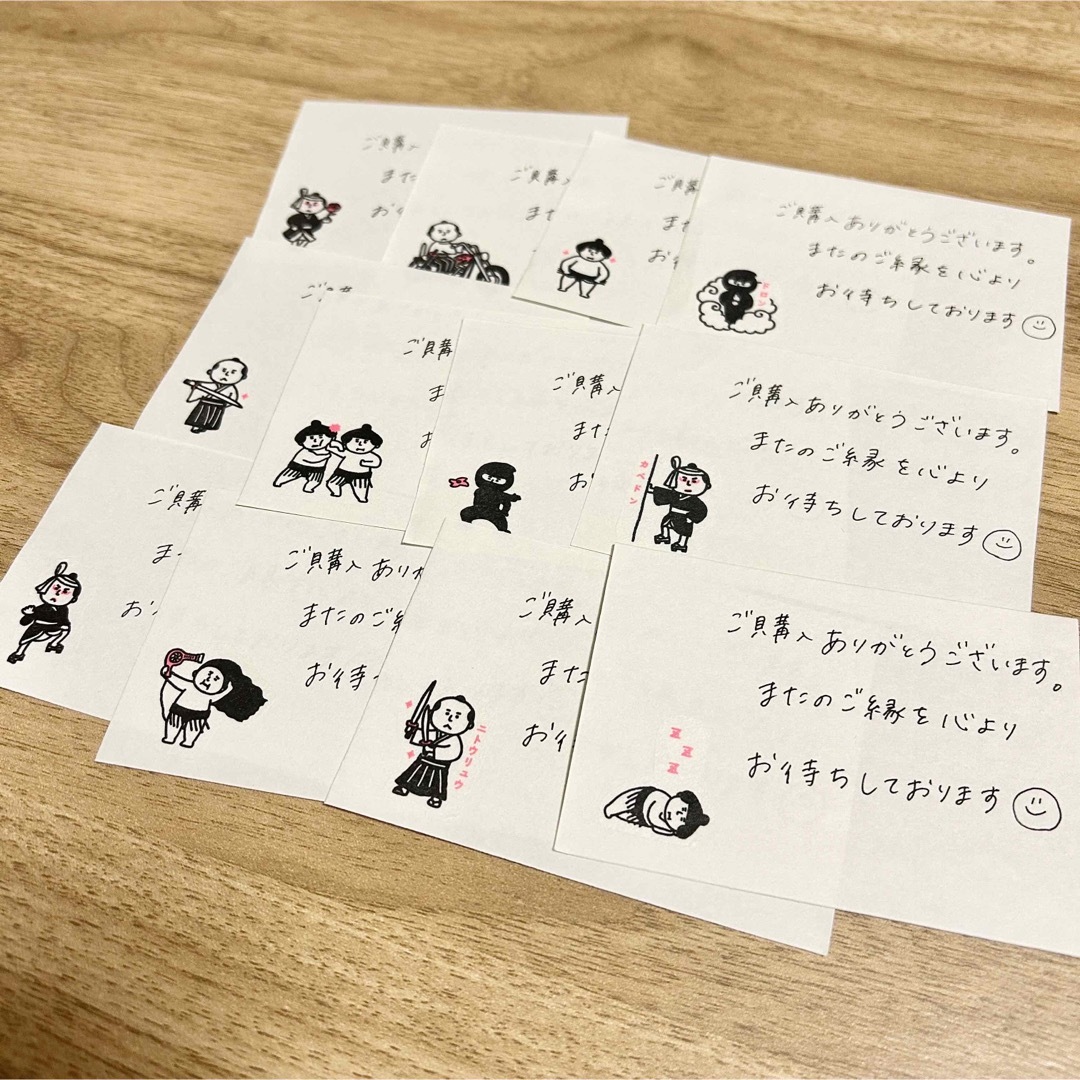 ご購
また
お
ご購入
また
ご購
また
お
ご購入ありがとうございます。
またのご縁を心より
お待ちしております
ドロン
ご購
ご購
ま
お
ご購入
また
お
ご購入ありがとうございます。
またのご縁を心より
お待ちしております
カベドン
ご購
ま
お
ご購入ありが
またのご縁
お待
ご購入
また
お待
ニトウリュウ
ご購入ありがとうございます。
またのご縁を心より
お待ちしております
Z
Z
Z